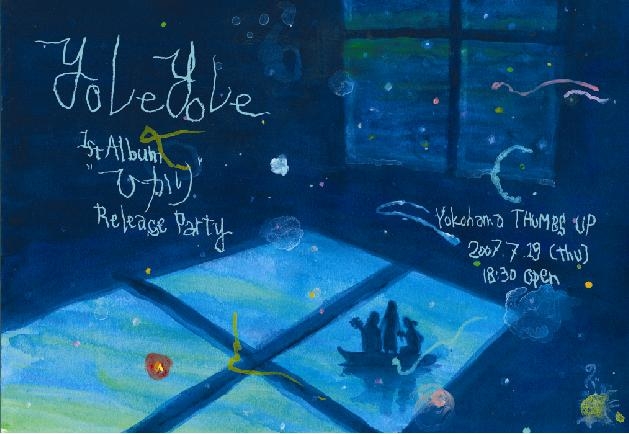 YoLeYoLe
1st Album
"ひかり"
Release Party
Yokohama THUMBS UP
2007.7.19 (thu)
18:30 open